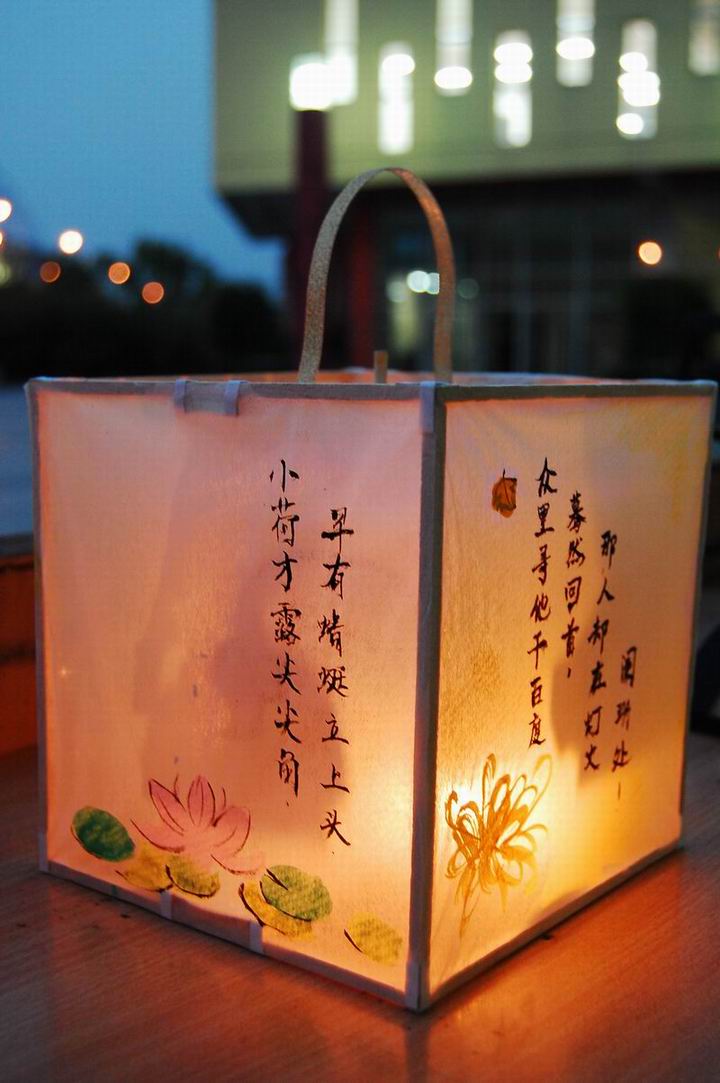 小荷才露尖尖角，
早有蜻蜓立上头.
众里寻他千百度
蓦然回首，
那人却在灯火
阑珊处